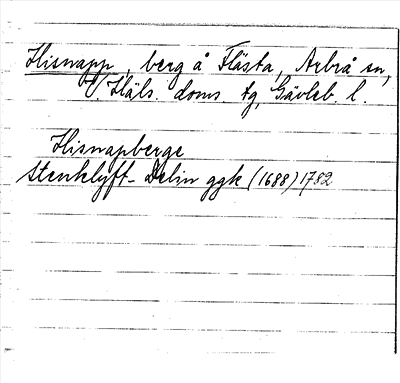 Hisnapp, berg å Flästa, Arbrå sn,
V. Häls. doms. tg, Gävleb. l.
Hisnapberge
Stenklyft- Delin ggk (1688) 1782